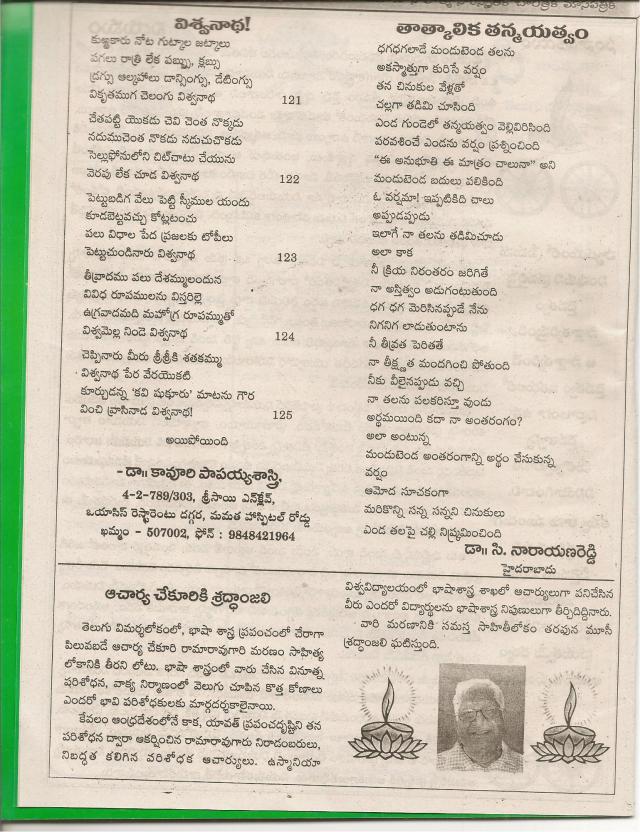 విశ్వనాథ!
కుఱ్ఱకారు నోట గుట్కాల జట్కాలు
పగలు రాత్రి లేక పబ్బు, క్లబ్బు
డ్రగ్సు ఆల్కహాలు డాన్సింగ్సు, డేటింగ్సు
వికృతముగ చెలంగు విశ్వనాథ 121
చేతపట్టి యొకడు చెవి చెంత నొక్కడు
నడుముచెంత నొకడు నడుచుచొకడు
సెల్లుఫోనులోని చిట్‌చాటు చేయును
వెరపు లేక చూడ విశ్వనాథ 122
పెట్టుబడిగ వేలు పెట్టి స్కీముల యందు
కూడబెట్టవచ్చు కోట్లటంచు
పలు విధాల పేద ప్రజలకు టోపీలు
పెట్టుచుండినారు విశ్వనాథ 123
తీవ్రవాదము పలు దేశమ్ములందున
వివిధ రూపములను విస్తరిల్లె
ఉగ్రవాదమది మహోగ్ర రూపమ్ముతో
విశ్వమెల్ల నిండె విశ్వనాథ 124
చెప్పినారు మీరు శ్రీశ్రీకి శతకమ్ము
విశ్వనాథ పేర వేరయొకటి
కూర్చుడన్న 'కవి షుకూరు' మాటను గౌర
వించి వ్రాసినాడ విశ్వనాథ! 125
అయిపోయింది
- డా॥ కావూరి పాపయ్యశాస్త్రి,
4-2-789/303, శ్రీసాయి ఎన్‌క్లేవ్,
ఒయాసిస్ రెస్టారెంటు దగ్గర, మమత హాస్పిటల్ రోడ్డు
ఖమ్మం - 507002, ఫోన్ : 9848421964
తాత్కాలిక తన్మయత్వం
ధగధగలాడే మండుటెండ తలను
అకస్మాత్తుగా కురిసే వర్షం
తన చినుకుల వేళ్లతో
చల్లగా తడిమి చూసింది
ఎండ గుండెలో తన్మయత్వం వెల్లివిరిసింది
పరవశించే ఎండను వర్షం ప్రశ్నించింది
"ఈ అనుభూతి ఈ మాత్రం చాలునా" అని
మండుటెండ బదులు పలికింది
ఓ వర్షమా! ఇప్పటికిది చాలు
అప్పుడప్పుడు
ఇలాగే నా తలను తడిమిచూడు
అలా కాక
నీ క్రియ నిరంతరం జరిగితే
నా అస్తిత్వం అడుగంటుతుంది
ధగ ధగ మెరిసినప్పుడే నేను
నిగనిగ లాడుతుంటాను
నీ తీవ్రత పెరితే
నా తీక్ష్ణత మందగించి పోతుంది
నీకు వీలైనప్పుడు వచ్చి
నా తలను పలకరిస్తూ వుండు
అర్థమయింది కదా నా అంతరంగం?
అలా అంటున్న
మండుటెండ అంతరంగాన్ని అర్థం చేసుకున్న
వర్షం
ఆమోద సూచకంగా
మరికొన్ని సన్న సన్నని చినుకులు
ఎండ తలపై చల్లి నిష్క్రమించింది
డా॥ సి. నారాయణరెడ్డి
హైదరాబాదు
ఆచార్య చేకూరికి శ్రద్ధాంజలి
తెలుగు విమర్శలోకంలో, భాషా శాస్త్ర ప్రపంచంలో చేరాగా
పిలువబడే ఆచార్య చేకూరి రామారావుగారి మరణం సాహిత్య
లోకానికి తీరని లోటు. భాషా శాస్త్రంలో వారు చేసిన వినూత్న
పరిశోధన, వాక్య నిర్మాణంలో వెలుగు చూపిన కొత్త కోణాలు
ఎందరో భావి పరిశోధకులకు మార్గదర్శకాలైనాయి.
కేవలం ఆంధ్రదేశంలోనే కాక, యావత్ ప్రపంచదృష్టిని తన
పరిశోధన ద్వారా ఆకర్షించిన రామారావుగారు నిరాడంబరులు,
నిబద్ధత కలిగిన పరిశోధక ఆచార్యులు. ఉస్మానియా
విశ్వవిద్యాలయంలో భాషాశాస్త్ర శాఖలో ఆచార్యులుగా పనిచేసిన
వీరు ఎందరో విద్యార్థులను భాషాశాస్త్ర నిపుణులుగా తీర్చిదిద్దినారు.
వారి మరణానికి సమస్త సాహితీలోకం తరఫున మూసీ
శ్రద్ధాంజలి ఘటిస్తుంది.